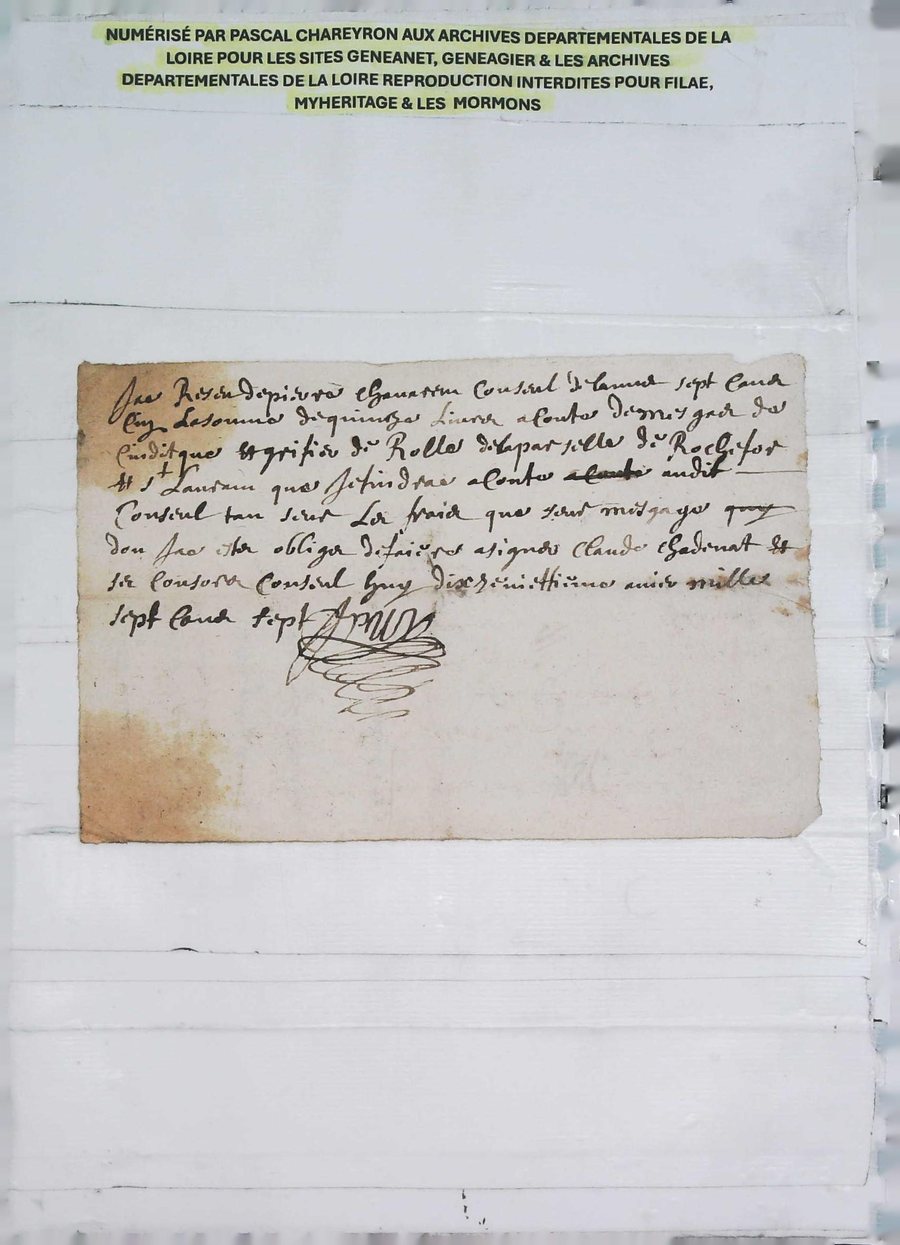 NUMÉRISÉ PAR PASCAL CHAREYRON AUX ARCHIVES DEPARTEMENTALES DE LA
LOIRE POUR LES SITES GENEANET, GENEAGIER & LES ARCHIVES
DEPARTEMENTALES DE LA LOIRE REPRODUCTION INTERDITES POUR FILAE,
MYHERITAGE & LES MORMONS
Jae Reseu de pierre Conseul de lannee sept
La somme de quinze Livres a Conte de mes gaes de
que et grifier de Rolle de la parselle de Rochefor
et st que Je tiendrae a Conte a Conte audit
Conseul tan sene Les fraies que sene
don Jae oblige de faire a signer Claude Chadenat et
ses Consors Conseul huy mille
sept Cens sept